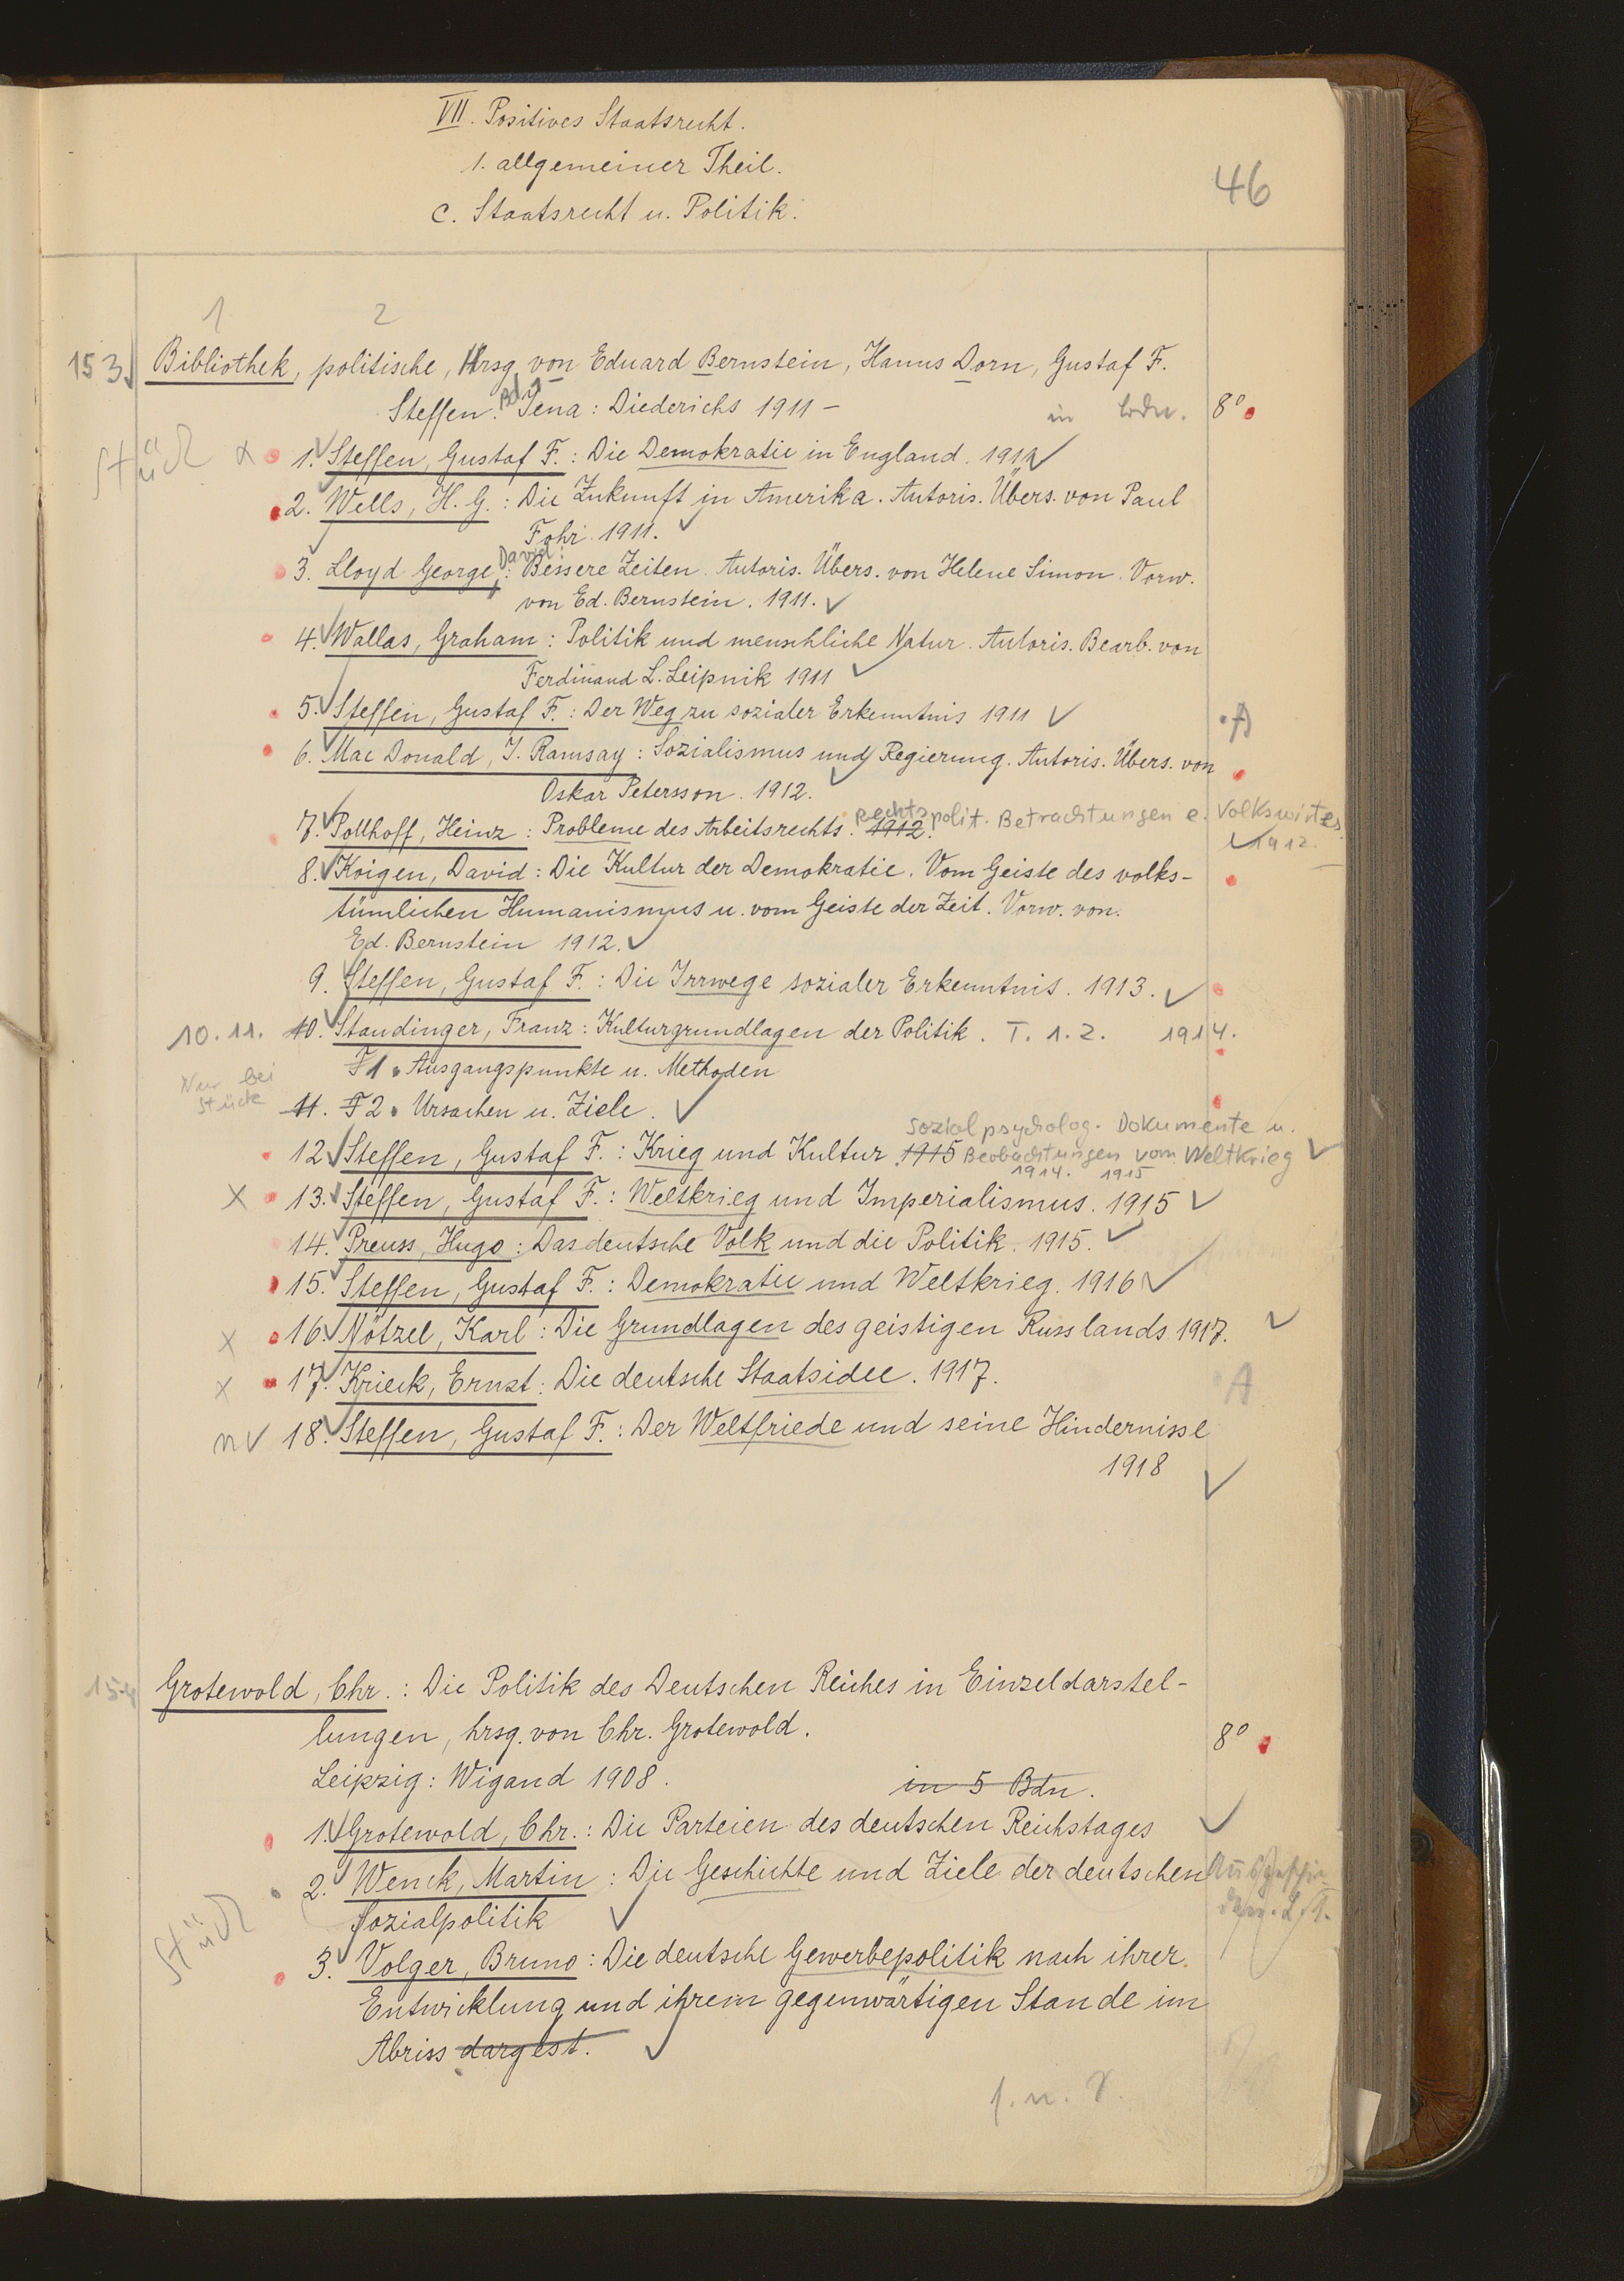 VII. Positives Staatsrecht.
1. allgemeiner Theil.
c. Staatsrecht u. Politik.
46
1 2
153 Bibliothek, politische, Hrsg von Eduard Bernstein, Hanns Dorn, Gustaf F.
Steffen. Bd. 1- Jena: Diederichs 1911 – in Bdn. 8°
Stück x 1. Steffen, Gustaf F.: Die Demokratie in England. 1911
2. Wells, H. G.: Die Zukunft in Amerika. Autoris. Übers. von Paul
Fohr. 1911.
3. Lloyd George, David: Bessere Zeiten. Autoris. Übers. von Helene Simon. Vorw.
von Ed. Bernstein. 1911.
4. Wallas, Graham: Politik und menschliche Natur. Autoris. Bearb. von
Ferdinand L. Leipnik 1911
5. Steffen, Gustaf F.: Der Weg zu sozialer Erkenntnis 1911
6. Mac Donald, J. Ramsay: Sozialismus und Regierung. Autoris. Übers. von
Oskar Petersson. 1912.
7. Potthoff, Heinz: Probleme des Arbeitsrechts. 1912. rechtspolit. Betrachtungen e. Volkswirtes.
1912.
8. Koigen, David: Die Kultur der Demokratie. Vom Geiste des volks-
tümlichen Humanismus u. vom Geiste der Zeit. Vorw. von.
Ed. Bernstein 1912.
9. Steffen, Gustaf F.: Die Irrwege sozialer Erkenntnis. 1913.
10. 11. 10. Staudinger, Franz: Kulturgrundlagen der Politik. T. 1. 2. 1914.
T 1. Ausgangspunkte u. Methoden
Nur bei
Stück
11. T 2. Ursachen u. Ziele.
Sozialpsycholog. Dokumente u.
12. Steffen, Gustaf F.: Krieg und Kultur. 1915 Beobachtungen vom Weltkrieg
1914. 1915
x 13. Steffen, Gustaf F.: Weltkrieg und Imperialismus. 1915
14. Preuss, Hugo: Das deutsche Volk und die Politik. 1915.
15. Steffen, Gustaf F.: Demokratie und Weltkrieg. 1916
x 16. Nötzel, Karl: Die Grundlagen des geistigen Russlands 1917.
x 17. Krieck, Ernst: Die deutsche Staatsidee. 1917. A
n 18. Steffen, Gustaf F.: Der Weltfriede und seine Hindernisse
1918
154 Grotewold, Chr.: Die Politik des Deutschen Reiches in Einzeldarstel-
lungen, hrsg. von Chr. Grotewold.
8°
Leipzig: Wigand 1908. in 5 Bdn.
1. Grotewold, Chr.: Die Parteien des deutschen Reichstages
2. Wenck, Martin: Die Geschichte und Ziele der deutschen
Sozialpolitik
Stück
3. Volger, Bruno: Die deutsche Gewerbepolitik nach ihrer
Entwicklung und ihrem gegenwärtigen Stande im
Abriss dargest.